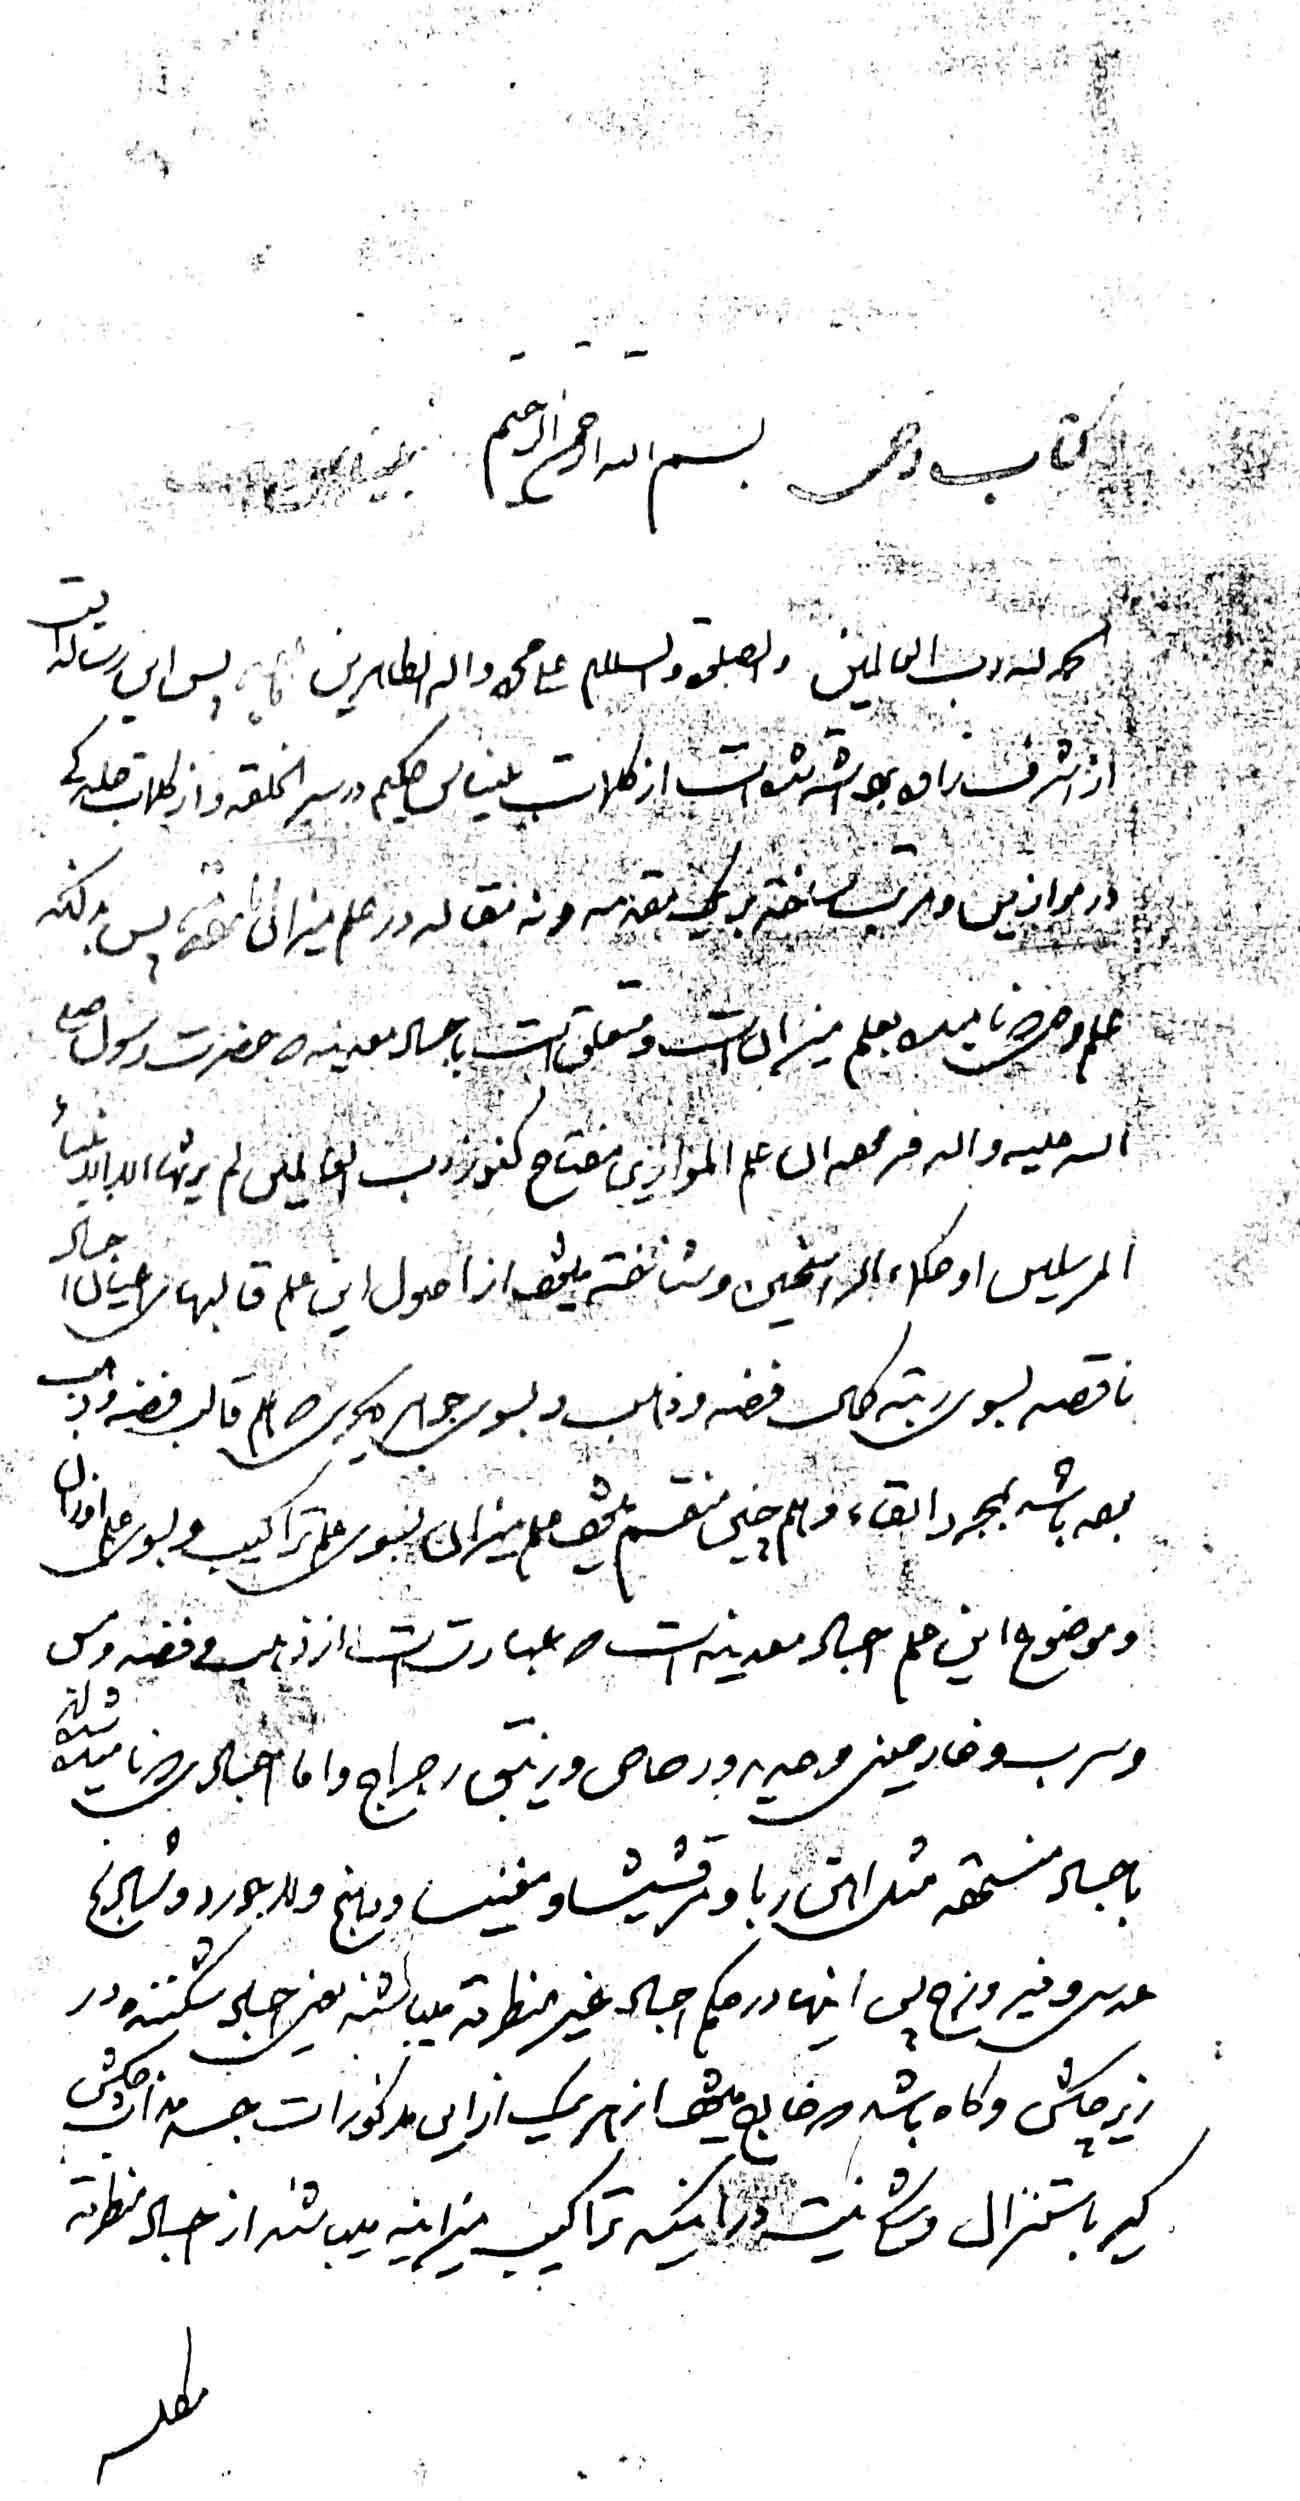 کتاب بسم الله الرحمن الرحیم
الحمد لله رب العالمین والصلوة والسلام علی محمد واله الطاهرین پس این رساله ایست
از اشرف برداشته شده است از کلمات بلیناس حکیم در سر الخلقه و از کلمات جلدکی
در موازین و مرتب ساخته بر یک مقدمه و نه مقاله در علم میزان پس بدانکه
علم نامیده بعلم میزان است و متعلق است باجساد معدنیه و حضرت رسول صلی
الله علیه واله فرموده ان علم الموازین مفتاح کنوز رب العالمین لم یرثها الا الانبیاء
المرسلین او حکماء الراسخین و شناخته میشود از اصول این علم قلبهای اجساد
ناقصه بسوی رتبه کمال فضه و ذهب و بسوی که هم قالب فضه و ذهب
بوده باشد بمجرد القاء و هم چنین منقسم میشود علم میزان بسوی علم تراکیب و بسوی علم اوزان
و موضوع این علم اجساد معدنیه است که عبارت است از ذهب و فضه و مس
و سرب و خارصینی و حدید و رصاص و زیبق رجراج و اما اجسادی که نامیده شده اند
باجساد منسحقه مثل اهن ربا و مرقشیشا و مغنیسا و دهنج و لاجورد و شادنج
عدسی و فیروزج پس اینها در حکم اجساد غیر منطرقه میباشند یعنی اجساد شکننده در
زیر چکش و گاه باشد که خارج میشود از هر یک از این مذکورات جسد مذاب چکش
گیر باستنزال و شکی نیست در اینکه تراکیب میزانیه میباشند از اجساد منطرقه